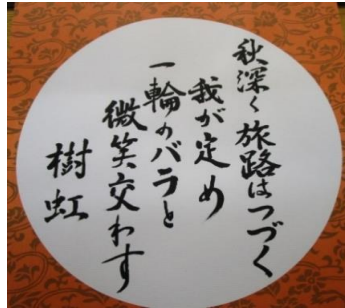 秋深く旅路はつづく
我が定め
一輪のバラと
微笑交わす
樹虹